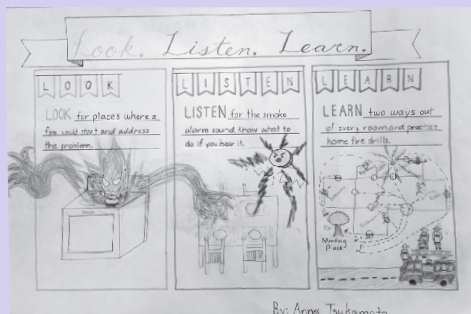 Look. Listen. Learn.
LOOK
LOOK for places where a
fire could start and address
the problem.
LISTEN
LISTEN for the smoke
alarm sound know what to
do if you hear it.
LEARN
LEARN two ways out
of every room and practice
home fire drills.
Meeting
Place
By: Anna Tsukamoto